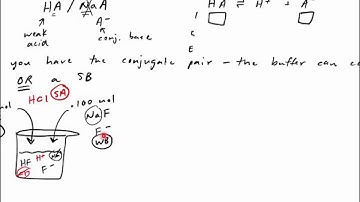 HA / NaA
HA ⇌ H⁺ + A⁻
weak acid
A⁻
conj. base
I
C
E
you have the conjugate pair – the buffer can
OR a SB
HCl SA
.100 mol
NaF
F⁻
WB
HF H⁺ Na
F⁻